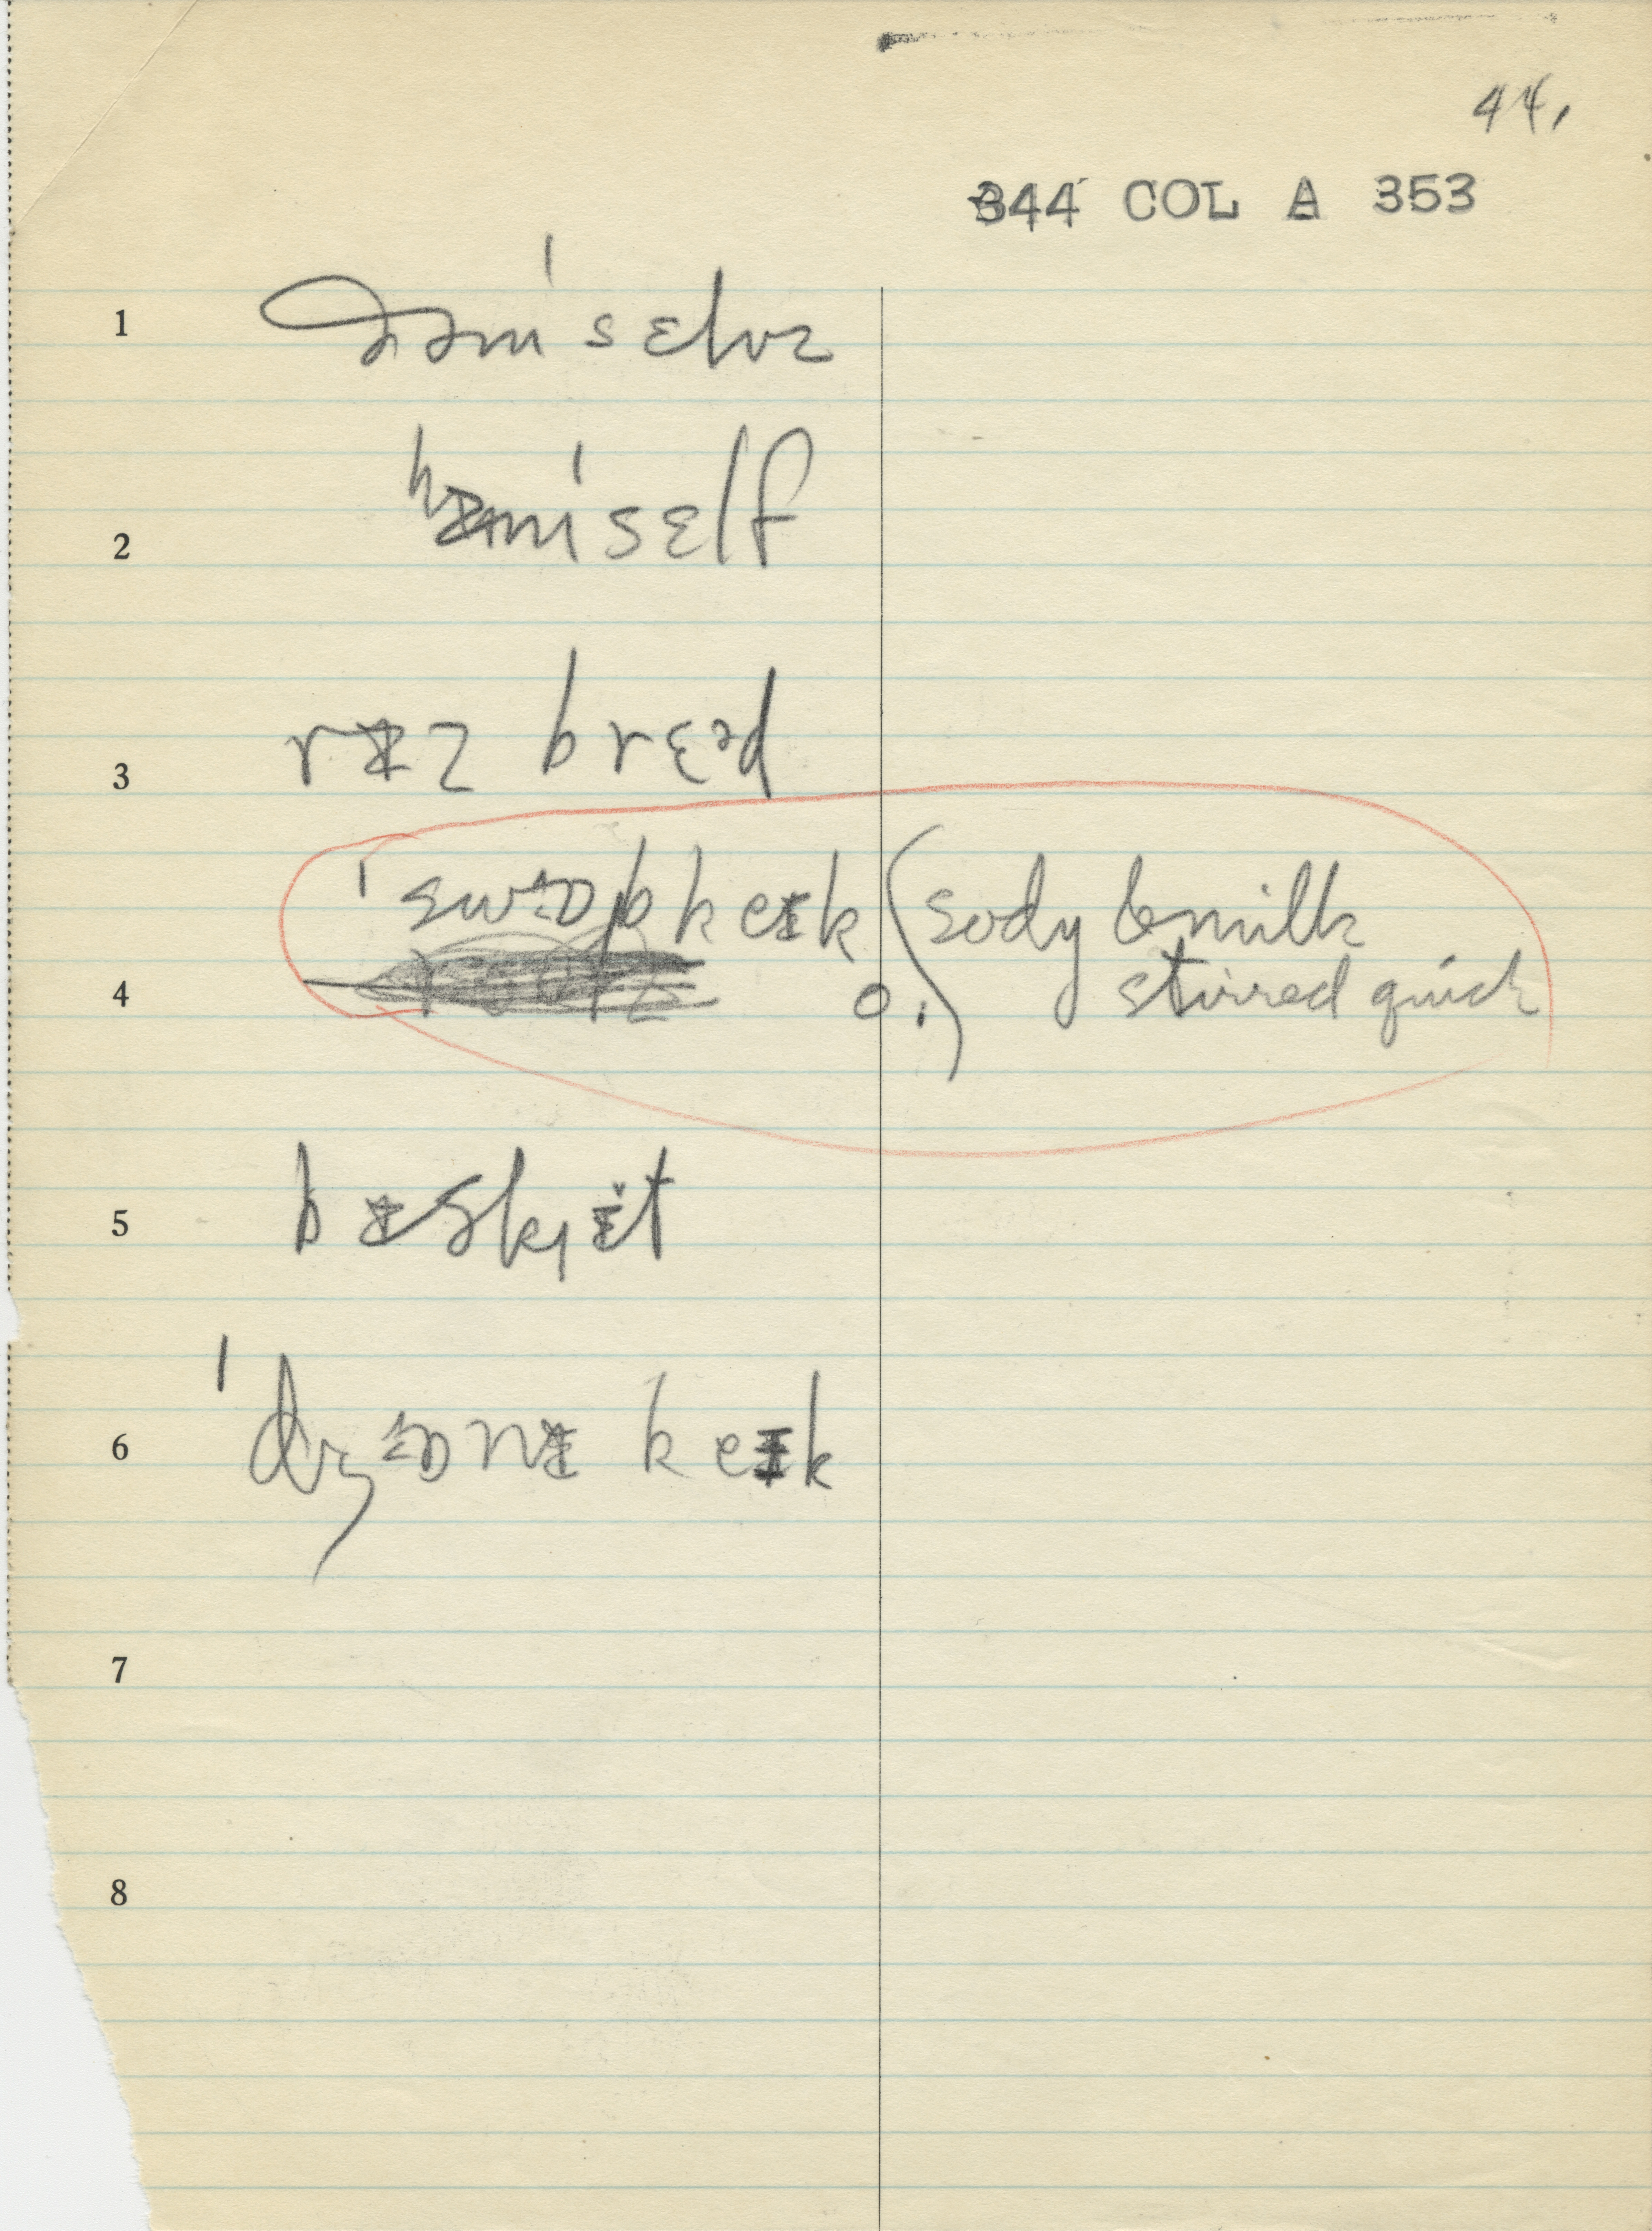 44.
344 COL A 353
1 ðəmˈsɛlvz
2 hɪmˈsɛlf
3 rɪz brɛᵊd
4 ˈswɔpkeɪk o. (sody & milk
stirred quick
5 bɪskɪ̯ɪ̆t
6 ˈdʒɔnɪ keɪk
7
8